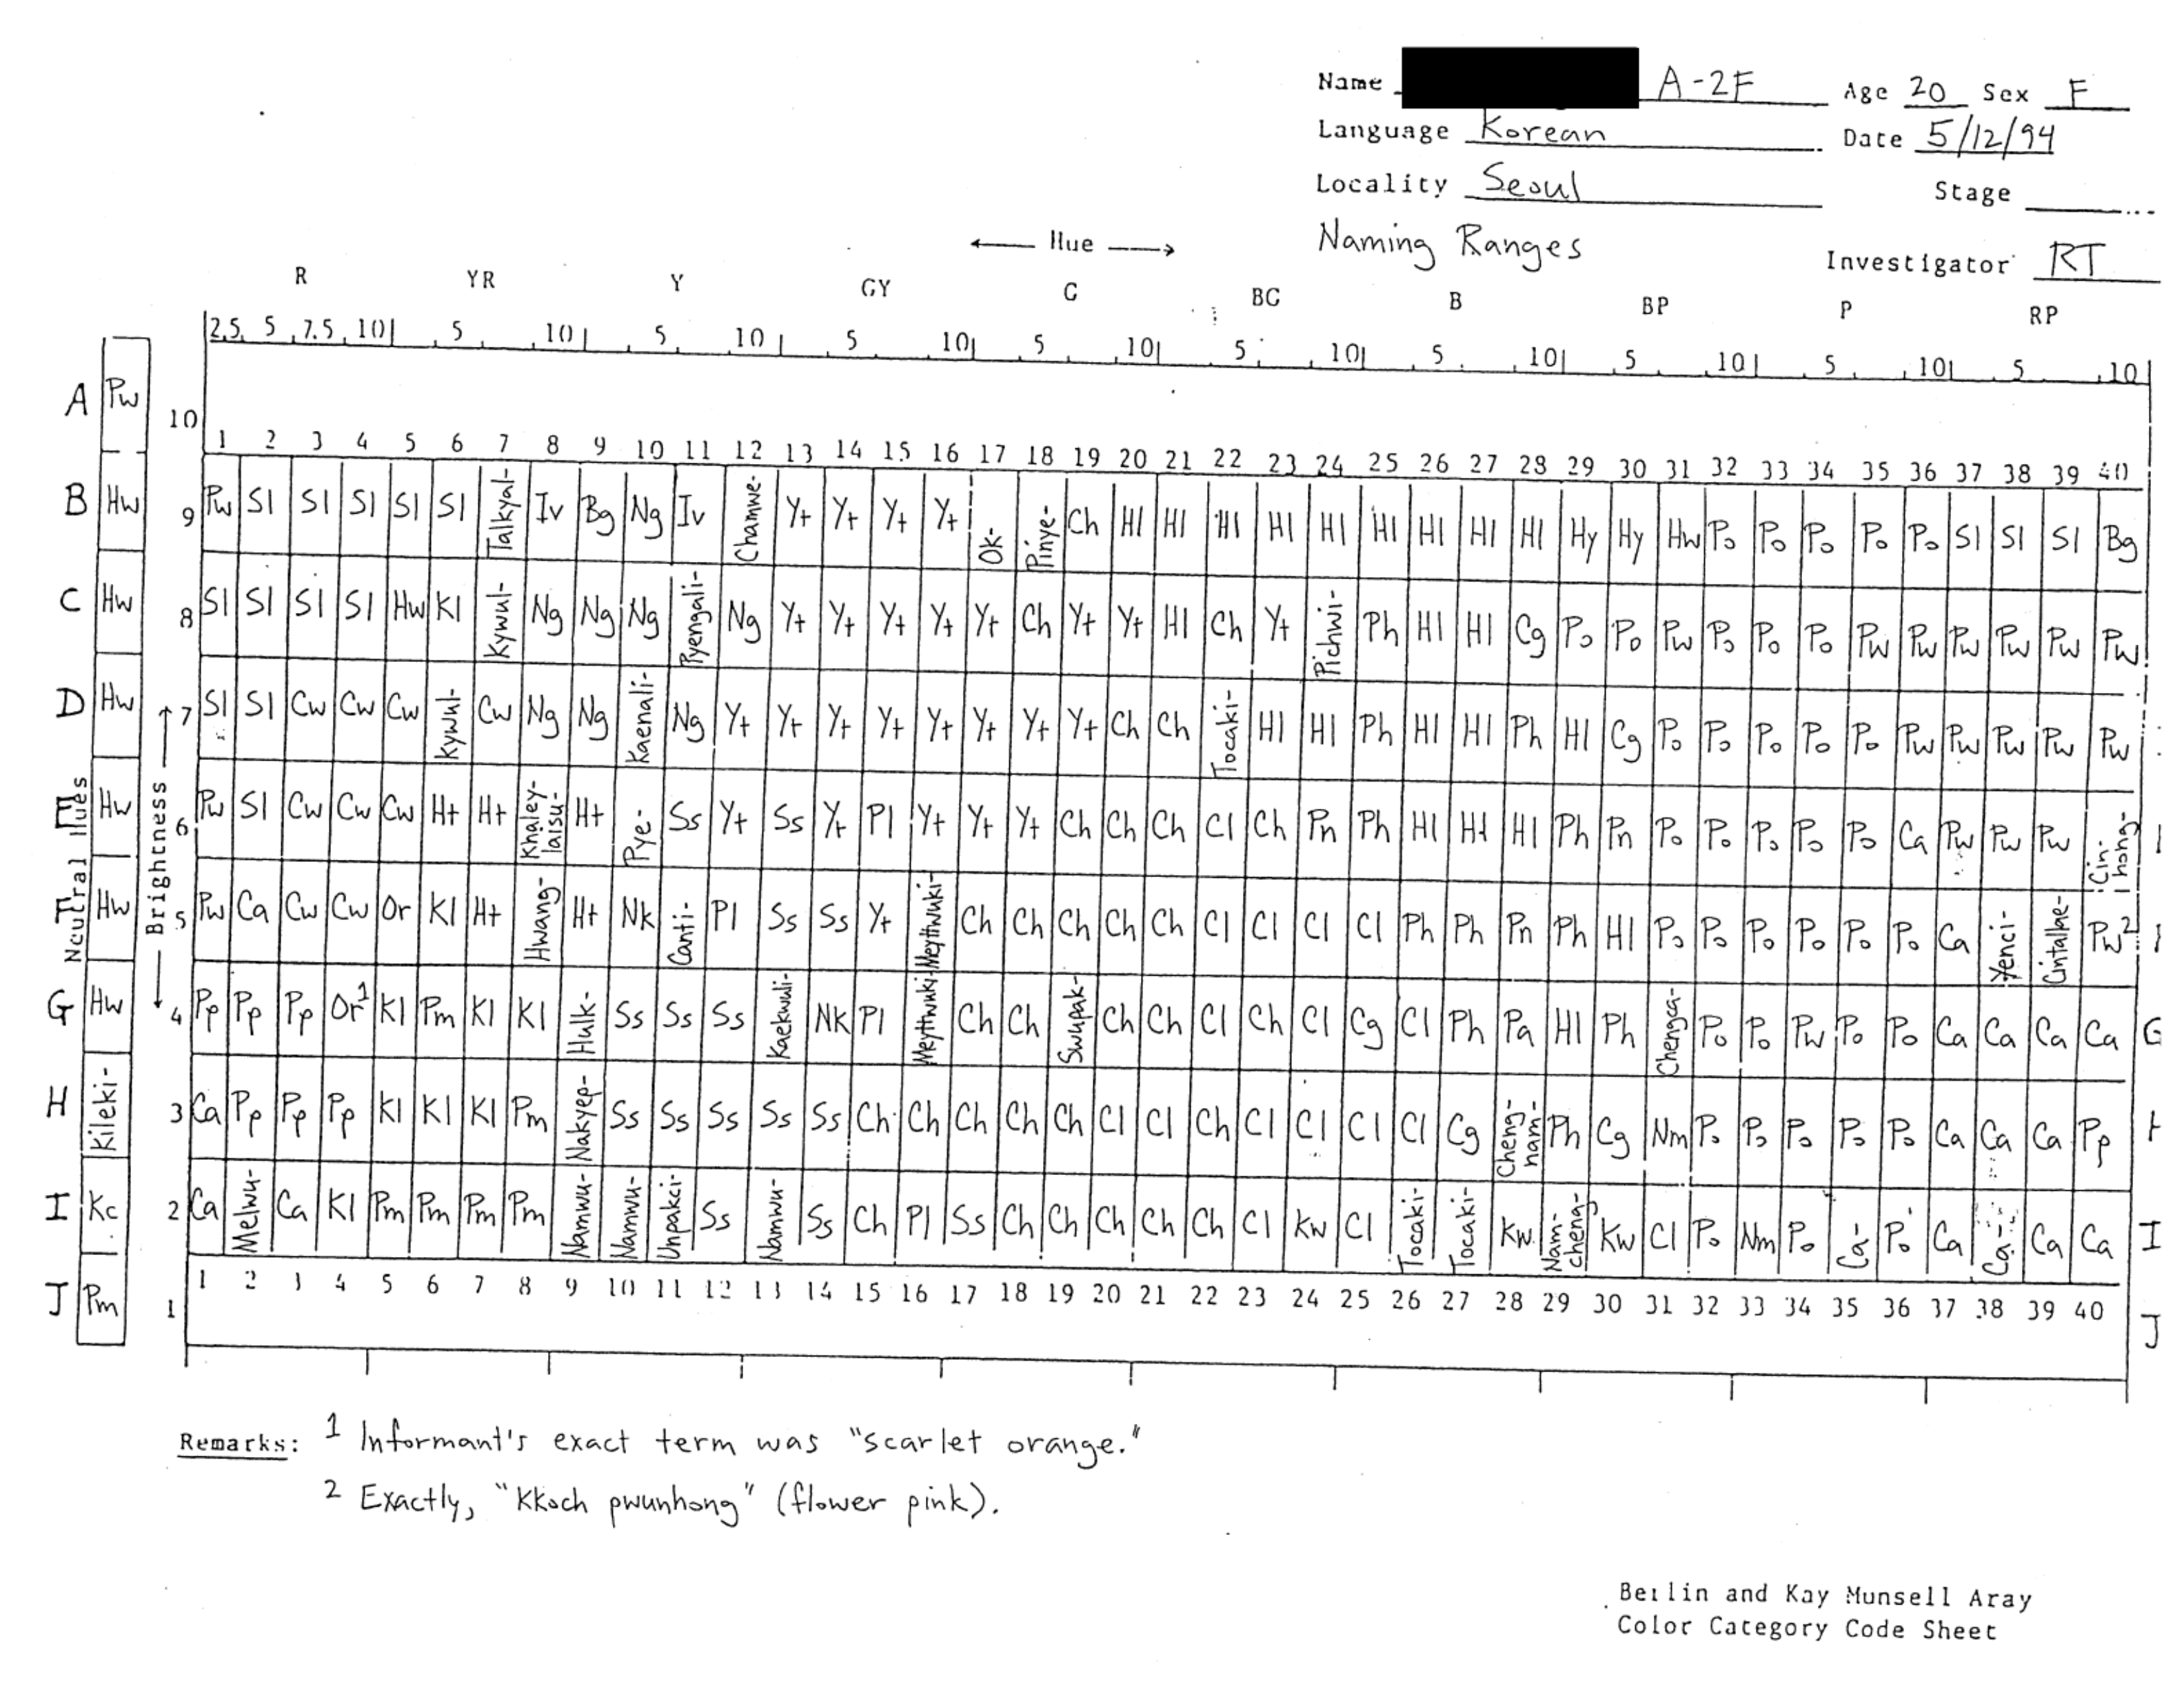 Name A-2F Age 20 Sex F
Language Korean Date 5/12/94
Locality Seoul Stage
Naming Ranges Investigator RT
← Hue →
R YR Y GY G BG B BP P RP
2.5 5 7.5 10 5 10 5 10 5 10 5 10 5 10 5 10 5 10 5 10 5 10
A Pw 10
1 2 3 4 5 6 7 8 9 10 11 12 13 14 15 16 17 18 19 20 21 22 23 24 25 26 27 28 29 30 31 32 33 34 35 36 37 38 39 40
B Hw 9 Pw Sl Sl Sl Sl Sl Talkyal- Iv Bg Ng Iv Chamwe- Yt Yt Yt Yt Ok- Pinye- Ch Hl Hl Hl Hl Hl Hl Hl Hl Hl Hy Hy Hw Po Po Po Po Po Sl Sl Sl Bg
C Hw 8 Sl Sl Sl Sl Hw Kl Kywul- Ng Ng Ng Pyengali- Ng Yt Yt Yt Yt Yt Ch Yt Yt Hl Ch Yt Pichwi- Ph Hl Hl Cg Po Po Pw Po Po Po Pw Pw Pw Pw Pw Pw
D Hw 7 Sl Sl Cw Cw Cw Kywul- Cw Ng Ng Kaenali- Ng Yt Yt Yt Yt Yt Yt Yt Yt Ch Ch Tocaki- Hl Hl Ph Hl Hl Ph Hl Cg Po Po Po Po Po Pw Pw Pw Pw Pw
E Hw 6 Pw Sl Cw Cw Cw Ht Ht Khaley-laisu- Ht Pye- Ss Yt Ss Yt Pl Yt Yt Yt Ch Ch Ch Cl Ch Pn Ph Hl Hl Hl Ph Pn Po Po Po Po Po Ca Pw Pw Pw Cin-hong-
F Hw 5 Pw Ca Cw Cw Or Kl Ht Hwang- Ht Nk Canti- Pl Ss Ss Yt Meythwuki- Ch Ch Ch Ch Ch Cl Cl Cl Cl Ph Ph Pn Ph Hl Po Po Po Po Po Po Ca Yenci- Cintallae- Pw2
G Hw 4 Pp Pp Pp Or1 Kl Pm Kl Kl Hulk- Ss Ss Ss Kaekwuli- Nk Pl Meythwuki- Ch Ch Swupak- Ch Ch Cl Ch Cl Cg Cl Ph Pa Hl Ph Chengca- Po Po Pw Po Po Ca Ca Ca Ca G
H Kileki- 3 Ca Pp Pp Pp Kl Kl Kl Pm Nakyep- Ss Ss Ss Ss Ss Ch Ch Ch Ch Ch Cl Cl Ch Cl Cl Cl Cl Cg Cheng-nam- Ph Cg Nm Po Po Po Po Po Ca Ca Ca Pp
I Kc 2 Ca Melwu- Ca Kl Pm Pm Pm Pm Namwu- Namwu- Unpakci- Ss Namwu- Ss Ch Pl Ss Ch Ch Ch Ch Ch Cl Kw Cl Tocaki- Tocaki- Kw Nam-cheng- Kw Cl Po Nm Po Ca- Po Ca Ca- Ca Ca I
J Pm 1 J
1 2 3 4 5 6 7 8 9 10 11 12 13 14 15 16 17 18 19 20 21 22 23 24 25 26 27 28 29 30 31 32 33 34 35 36 37 38 39 40
Neutral Hues
← Brightness →
Remarks: 1 Informant's exact term was "scarlet orange."
2 Exactly, "Kkoch pwunhong" (flower pink).
Berlin and Kay Munsell Aray
Color Category Code Sheet